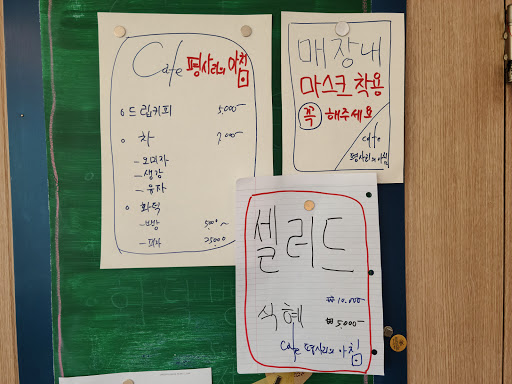 Cafe 평사리의 아침
드립커피 5,000-
차 7,000-
- 오미자
- 생강
- 유자
화덕
- 빵
- 피자 25000
매장내
마스크 착용
꼭 해주세요
Cafe
평사리의 아침
셀러드
₩10.000-
식혜 ₩5.000-
Cafe 평사리의 아침